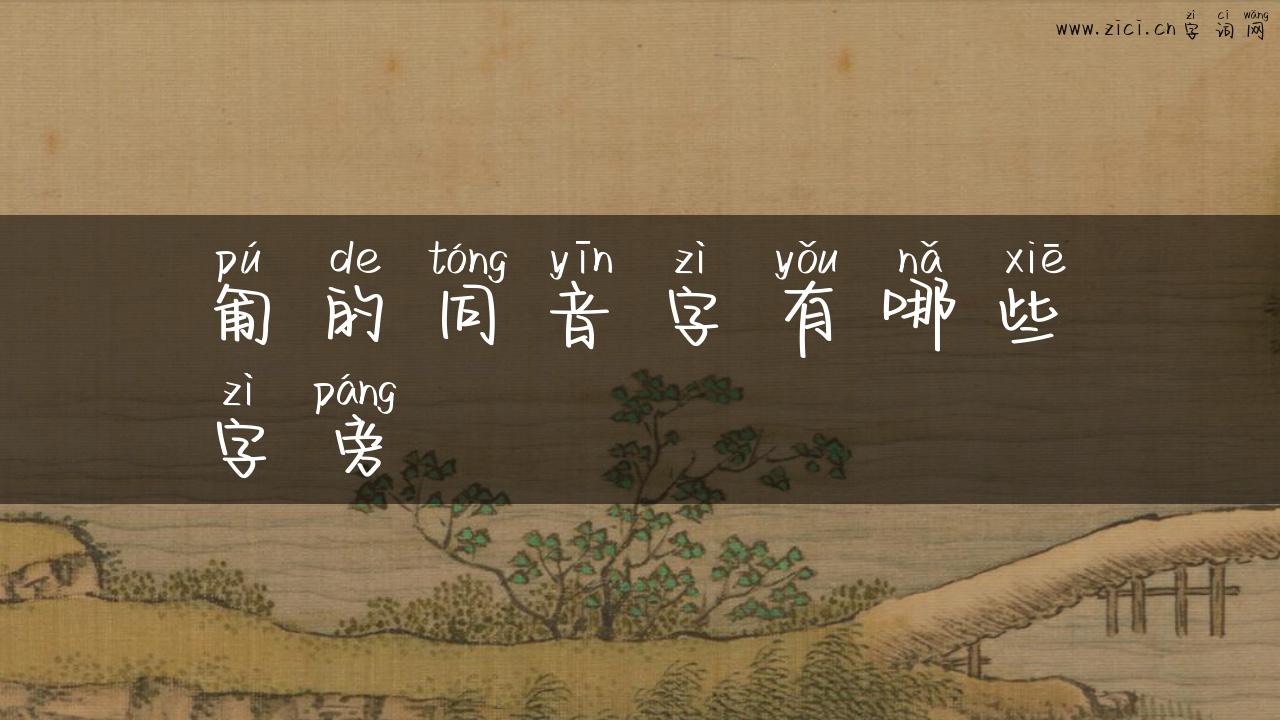 zì cí wǎng
www.zici.cn 字词网
pú de tóng yīn zì yǒu nǎ xiē
匍的同音字有哪些
zì páng
字旁